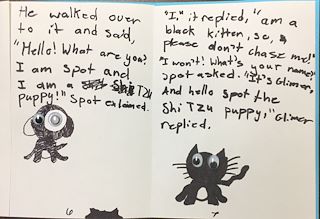 He walked over
to it and said,
"Hello! What are you?
I am spot and
I am a Shi TZU
puppy!" Spot exlaimed.
6
"I," it replied, "am a
black kitten, so,
please don't chase me!"
"I won't! What's your name,"
spot asked. "It's Glimer,
And hello spot the
Shi TZU puppy," Glimer
replied.
7